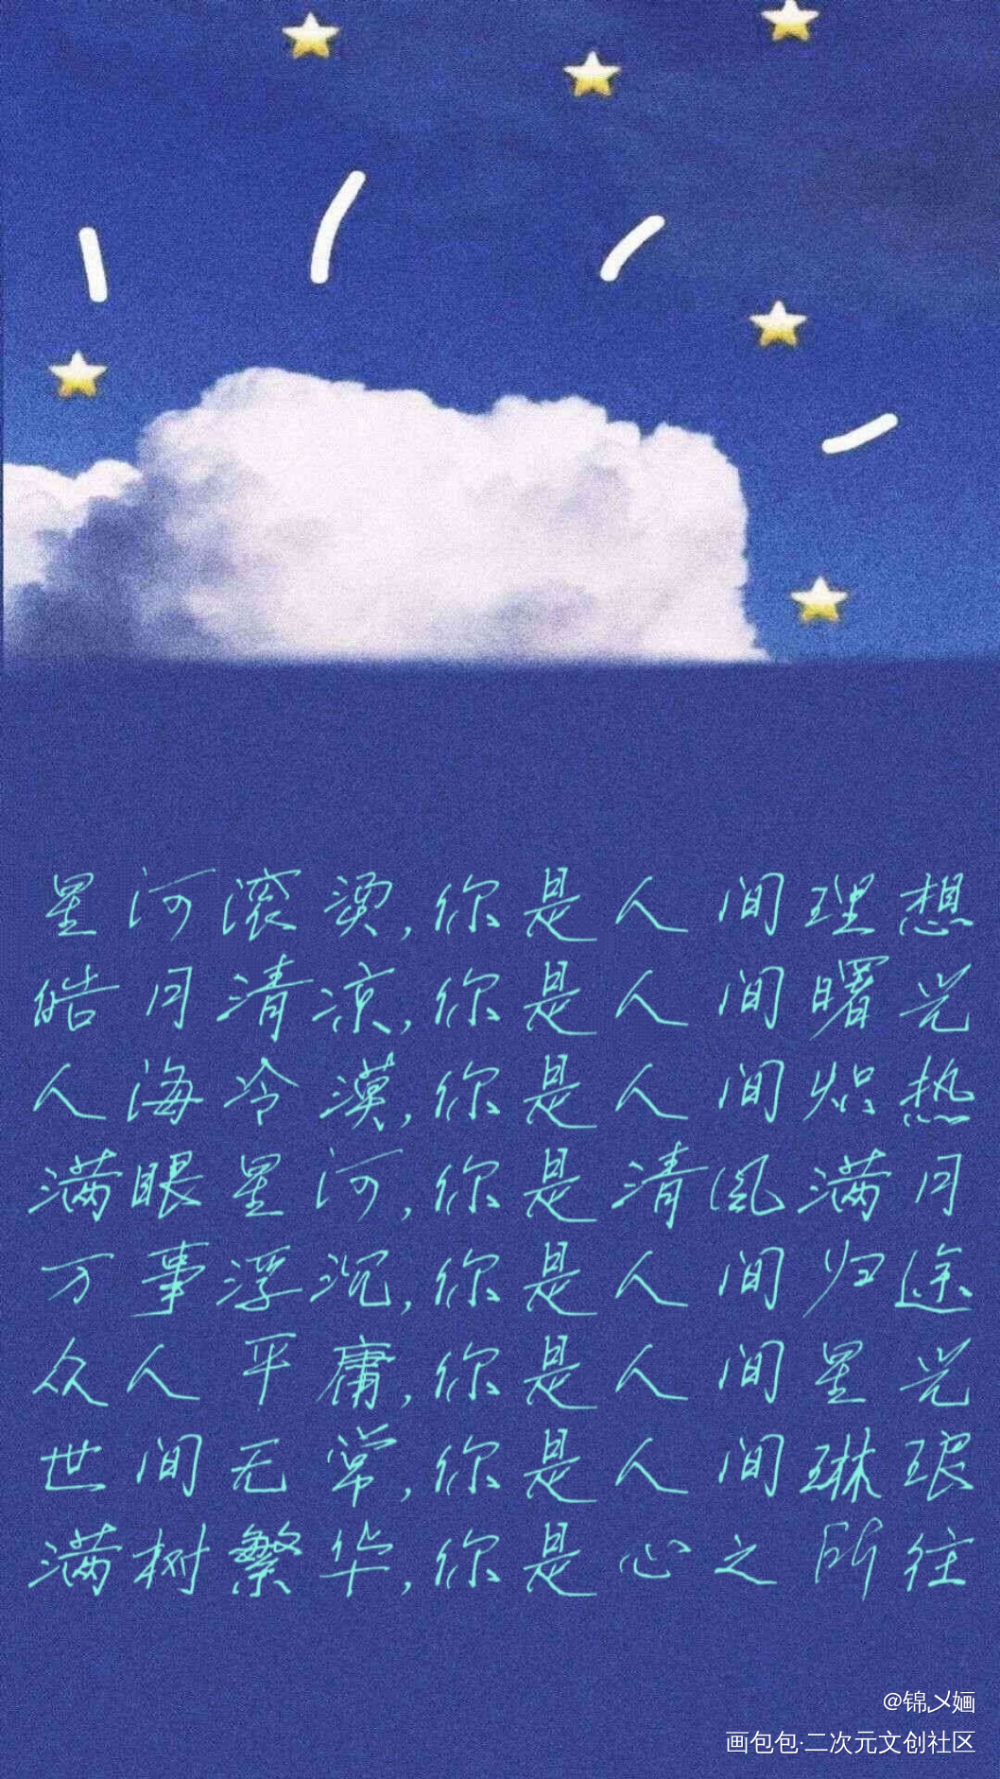 星河滚烫,你是人间理想
皓月清凉,你是人间曙光
人海冷漠,你是人间炽热
满眼星河,你是清风满月
万事浮沉,你是人间归途
众人平庸,你是人间星光
世间无常,你是人间琳琅
满树繁华,你是心之所往
@锦乄婳
画包包·二次元文创社区